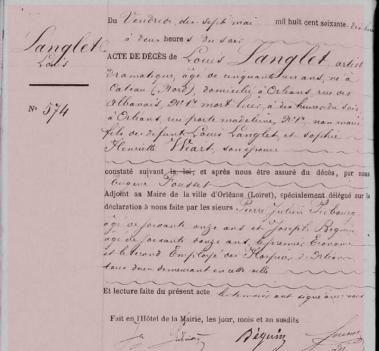 Du Vendredi dix sept mai mil huit cent soixante
Langlet
Louis
à deux heures du soir
ACTE DE DÉCÈS de Louis Langlet, artiste
dramatique, âgé de cinquante un ans, né à
Cateau (Nord), domicilié à Orléans, rue des
Albanais, mort hier, à dix heures du soir
N° 574
à Orléans, rue porte madeleine, non marié
fils de défunt Louis Langlet, et Sophie
Henriette Wiart, son épouse
constaté suivant la loi, et après nous être assuré du décès, par nous
Eugène Fousset
Adjoint au Maire de la ville d'Orléans (Loiret), spécialement délégué sur la
déclaration à nous faite par les sieurs Pierre Julien
âgé de soixante onze ans et Joseph Béguin
âgé de soixante ans, le premier Econome
et le second Employé des Hospices d'Orléans
tous deux demeurant en cette ville
Et lecture faite du présent acte les témoins ont signé avec nous
Fait en l'Hôtel de la Mairie, les jour, mois et an susdits
Béguin